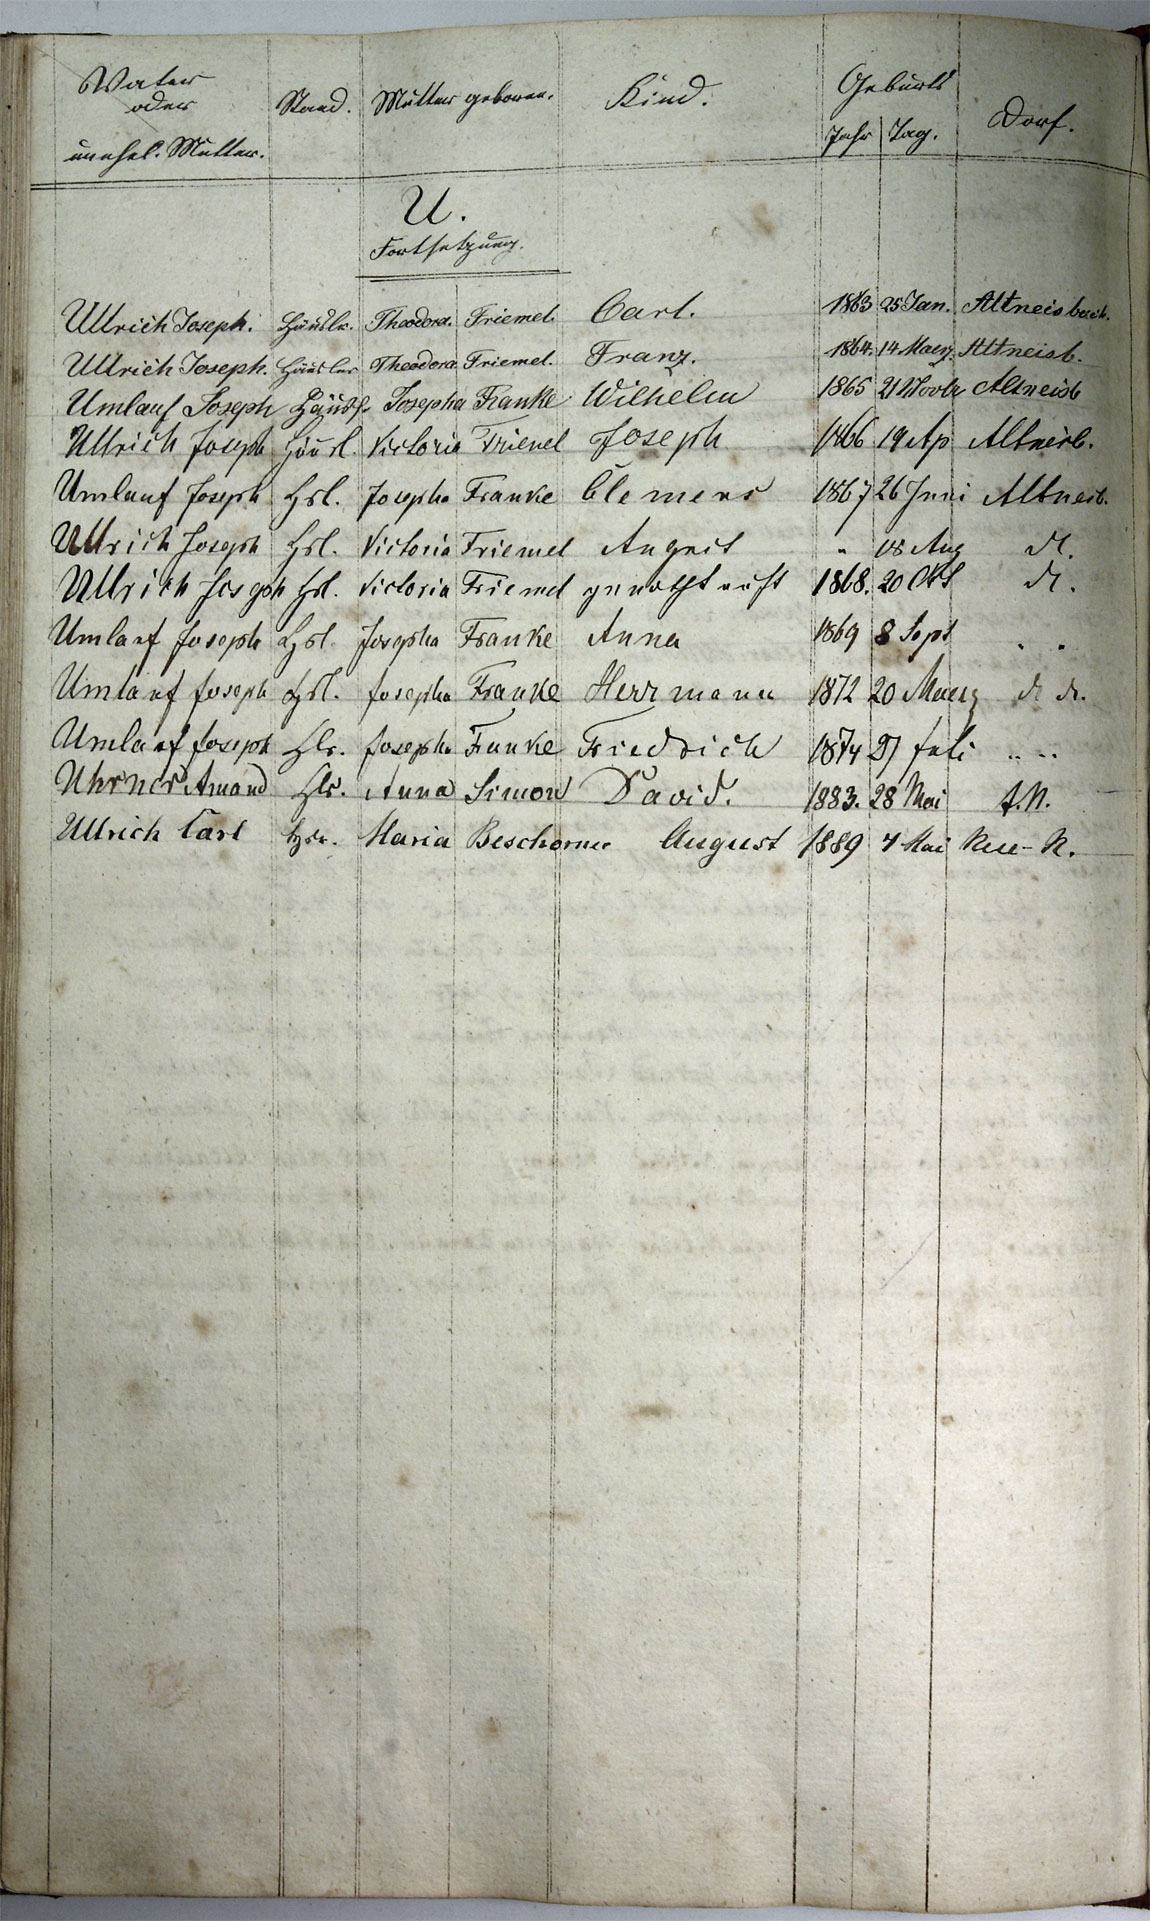 Vater oder unehel. Mutter. | Stand. | Mutter geboren. | Kind. | Geburts Jahr | Tag. | Dorf.
U.
Fortsetzung.
Ullrich Joseph. Häuslr. Theodora. Friemel. Carl. 1863 25 Jan. Altneisbach.
Ullrich Joseph. Häusler Theodora Friemel. Franz. 1864. 14 Maerz. Altneisb.
Umlauf Joseph Häusl. Josepha Franke Wilhelm 1865 21 Novbr Altneisb
Ullrich Joseph Häusl. Victoria Friemel Joseph 1866 19 Ap Altneisb.
Umlauf Joseph Hsl. Josepha Franke Clemens 1867 26 Juni Altneisb.
Ullrich Joseph Hsl. Victoria Friemel August " 18 Aug dt.
Ullrich Joseph Hsl. Victoria Friemel 1868. 20 Okt dt.
Umlauf Joseph Hsl. Josepha Franke Anna 1869 8 Sept . .
Umlauf Joseph Hsl. Josepha Franke Herrmann 1872 20 Maerz dt dt.
Umlauf Joseph Hlr. Josepha Franke Friedrich 1874 27 Juli .. ..
Uhrner Amand Hlr. Anna Simon David. 1883. 28 Mai A.N.
Ullrich Carl Hslr. Maria Beschorner August 1889 4 Mai Neu-N.